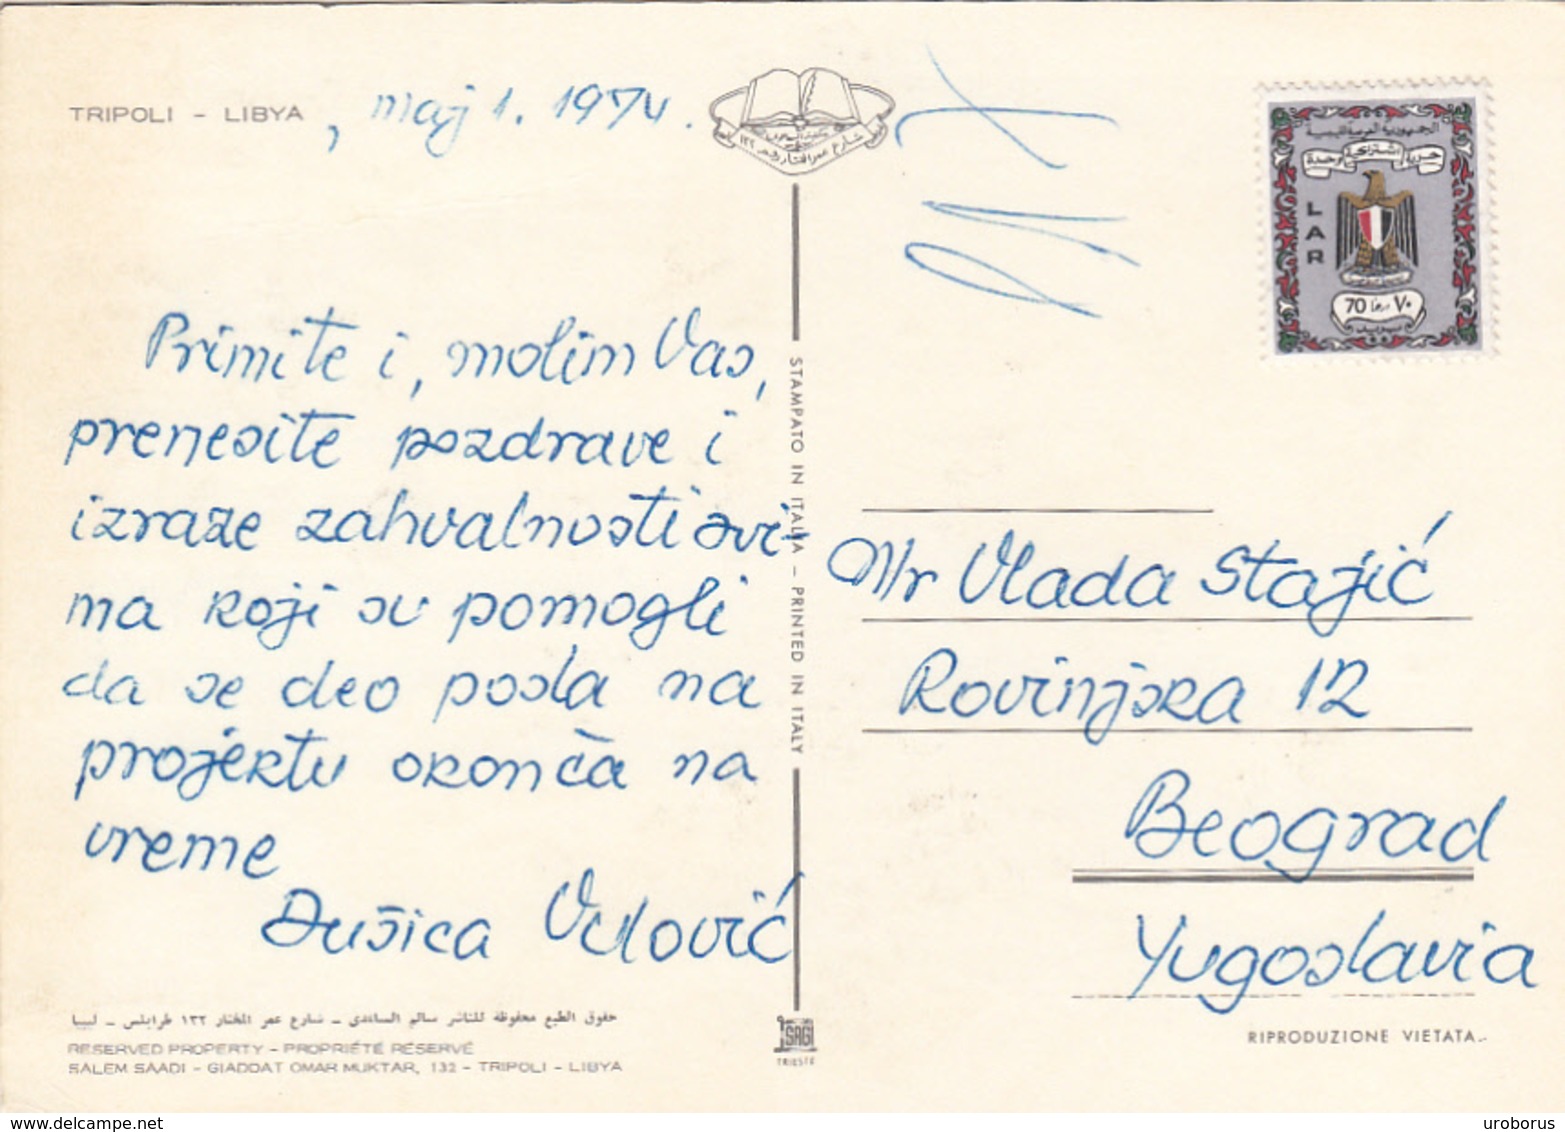 TRIPOLI - LIBYA , maj 1. 1974.
شارع عمر المختار رقم ١٣٢
الجمهورية العربية الليبية
حرية اشتراكية وحدة
LAR
70 درهما ٧٠
Primite i, molim Vas,
prenesite pozdrave i
izraze zahvalnosti svi-
ma koji su pomogli
da se deo posla na
projektu okonča na
vreme
Dušica Vulović
STAMPATO IN ITALIA - PRINTED IN ITALY
Mr Vlada Stajić
Rovinjska 12
Beograd
Yugoslavia
حقوق الطبع محفوظة للناشر سالم الساعدى - شارع عمر المختار ١٣٢ طرابلس - ليبيا
RESERVED PROPERTY - PROPRIÉTÉ RÉSERVÉ
SALEM SAADI - GIADDAT OMAR MUKTAR, 132 - TRIPOLI - LIBYA
SAGI
TRIESTE
RIPRODUZIONE VIETATA
uroborus